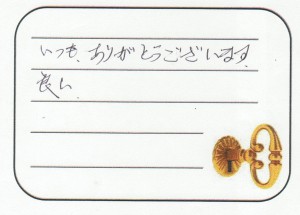 いつも、ありがとうございます。
良い